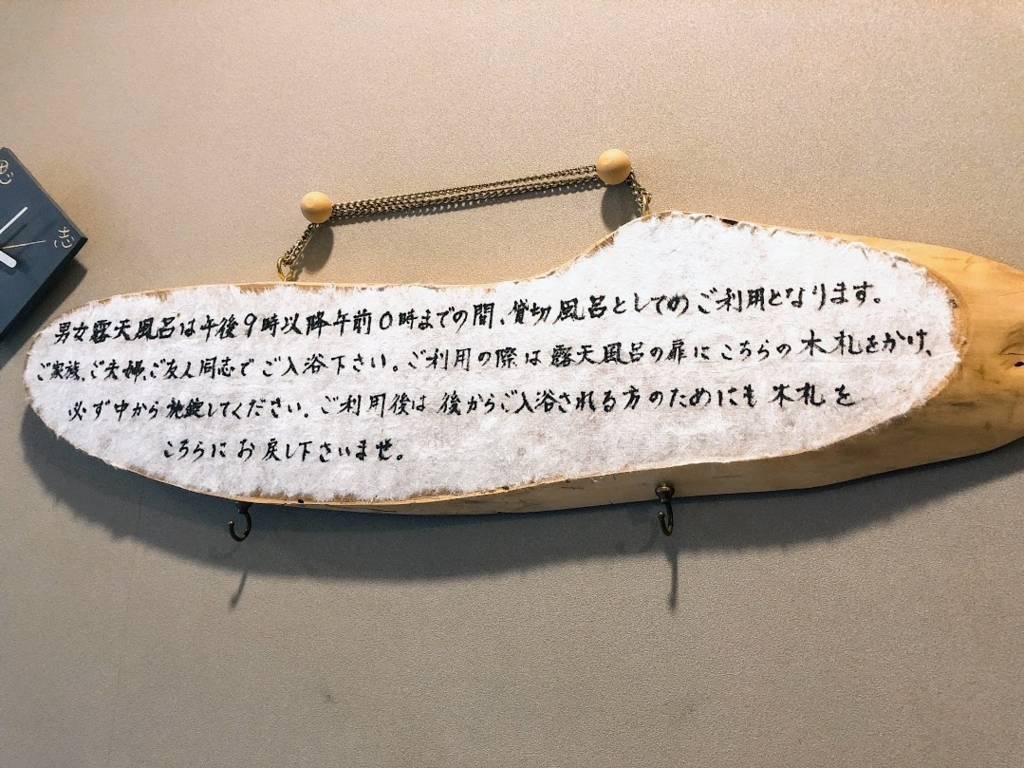 男女露天風呂は午後9時以降午前0時までの間、貸切風呂としてのご利用となります。
ご家族、ご夫婦、ご友人同志でご入浴下さい。ご利用の際は露天風呂の扉にこちらの木札をかけ、
必ず中から施錠してください。ご利用後は後からご入浴される方のためにも木札を
こちらにお戻し下さいませ。